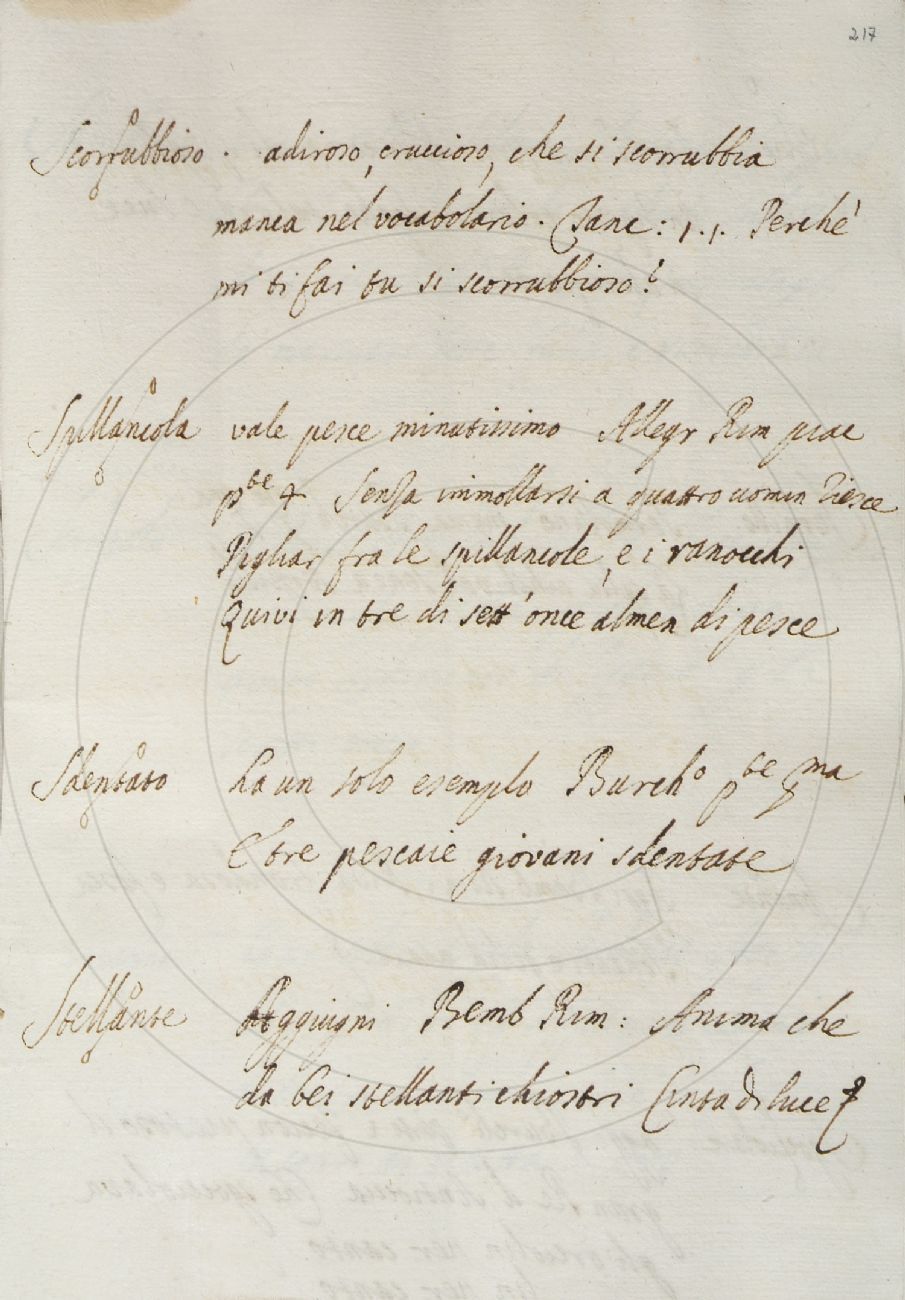 217
Scorrubbioso . adiroso, cruccioso, che si scorrubbia
manca nel vocabolario. Tanc: 1.1. Perche'
mi ti fai tu si scorrubbioso?
Spillancola vale pesce minutissimo Allegr Rim piac
pte 4 Senza immollarsi a quattro uomin riesce
Pigliar fra le spillancole, e i ranocchi
Quivi in tre di sett'once almen di pesce
Sdentato ha un solo esempio Burcho pte pma
E tre pescaie giovani sdentate
Stellante Aggiugni Bemb Rim: Anima che
da bei stellanti chiostri Cinta di luce